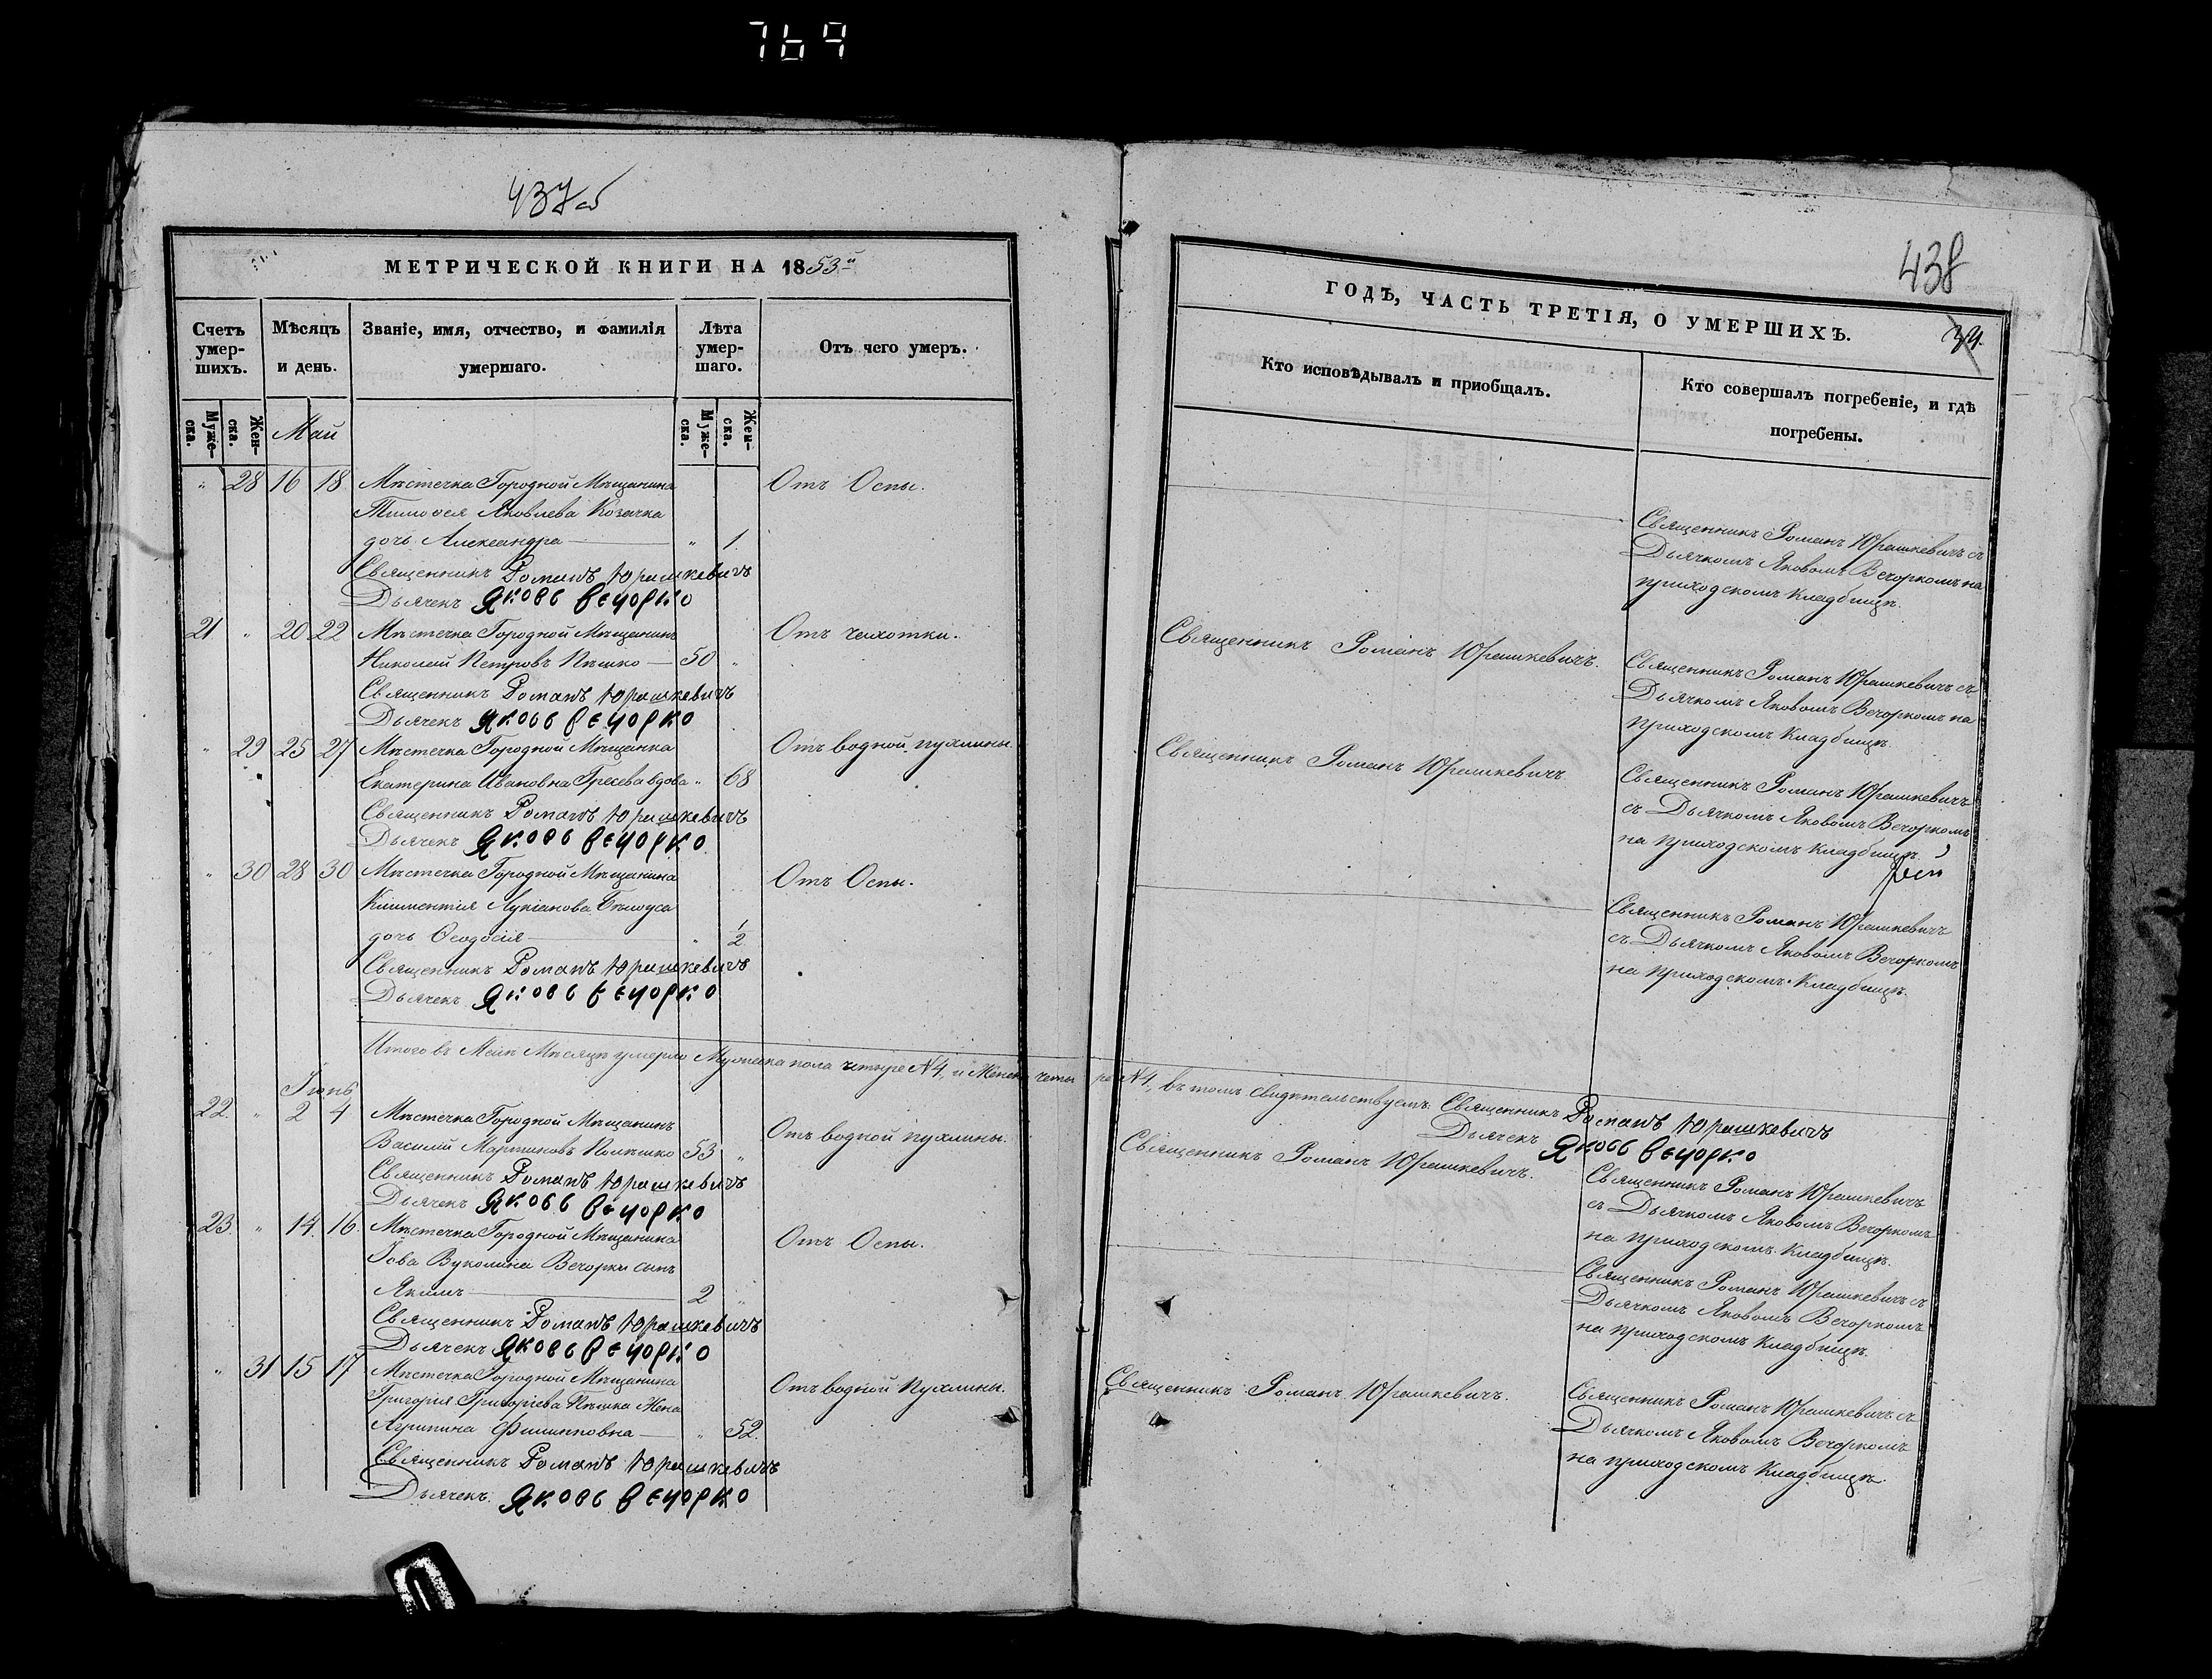 769
437об
МЕТРИЧЕСКОЙ КНИГИ НА 1853й
Счетъ умер-шихъ.
Мѣсяцъ и день.
Званіе, имя, отчество, и фамилія умершаго.
Лѣта умер-шаго.
Отъ чего умеръ.
Муже-ска.
Жен-ска.
Май
Муже-ска.
Жен-ска.
" 28 16 18 Мѣстечка Городной Мѣщанина Отъ Оспы.
Тимоѳея Яковлева Козачка
дочь Александра " 1.
Священникъ Романъ Юрашкевичъ
Дьячекъ Яковъ Вечорко
21 " 20 22 Мѣстечка Городной Мѣщанинъ Отъ чахотки.
Николай Петровъ Пѣшко 50 "
Священникъ Романъ Юрашкевичъ
Дьячекъ Яковъ Вечорко
" 29 25 27 Мѣстечка Городной Мѣщанка Отъ водной пухлины.
Екатерина Ивановна вдова " 68
Священникъ Романъ Юрашкевичъ
Дьячекъ Яковъ Вечорко
" 30 28 30 Мѣстечка Городной Мѣщанина Отъ Оспы.
Климентія Лукіанова Бѣлоуса
дочь Ѳеодосія " 1/2
Священникъ Романъ Юрашкевичъ
Дьячекъ Яковъ Вечорко
Итого въ Маѣ Мѣсяцѣ умерло Мужеска пола четыре №4, и Женска четыре №4, въ томъ свидѣтельствуемъ: Священникъ Романъ Юрашкевичъ
Дьячекъ Яковъ Вечорко
Іюнь
22. " 2 4 Мѣстечка Городной Мѣщанинъ Отъ водной пухлины.
Василій Мартиновъ Полѣшко 53 "
Священникъ Романъ Юрашкевичъ
Дьячекъ Яковъ Вечорко
23. " 14. 16. Мѣстечка Городной Мѣщанина Отъ Оспы.
Іова Вуколина Вечорки сынъ
Якимъ 2 "
Священникъ Романъ Юрашкевичъ
Дьячекъ Яковъ Вечорко
" 31 15 17 Мѣстечка Городной Мѣщанина Отъ водной Пухлины.
Григорія Григоріева Пѣшка Жена
Агрипина Филипповна " 52.
Священникъ Романъ Юрашкевичъ
Дьячекъ. Яковъ Вечорко
438
ГОДЪ, ЧАСТЬ ТРЕТІЯ, О УМЕРШИХЪ.
39.
Кто исповѣдывалъ и приобщалъ.
Кто совершалъ погребеніе, и гдѣ погребены.
Священникъ Романъ Юрашкевичъ съ
Дьячкомъ Яковомъ Вечоркомъ на
приходскомъ кладбищѣ.
Священникъ Романъ Юрашкевичъ.
Священникъ Романъ Юрашкевичъ съ
Дьячкомъ Яковомъ Вечоркомъ на
приходскомъ кладбищѣ.
Священникъ Романъ Юрашкевичъ
Священникъ Романъ Юрашкевичъ
съ Дьячкомъ Яковомъ Вечоркомъ
на приходскомъ кладбищѣ.
Священникъ Романъ Юрашкевичъ
съ Дьячкомъ Яковомъ Вечоркомъ
на приходскомъ Кладбищѣ.
Священникъ Романъ Юрашкевичъ.
Священникъ Романъ Юрашкевичъ
съ Дьячкомъ Яковомъ Вечоркомъ
на приходскомъ Кладбищѣ.
Священникъ Романъ Юрашкевичъ съ
Дьячкомъ Яковомъ Вечоркомъ
на приходскомъ кладбищѣ.
Священникъ Романъ Юрашкевичъ.
Священникъ Романъ Юрашкевичъ съ
Дьячкомъ Яковомъ Вечоркомъ
на приходскомъ кладбищѣ.